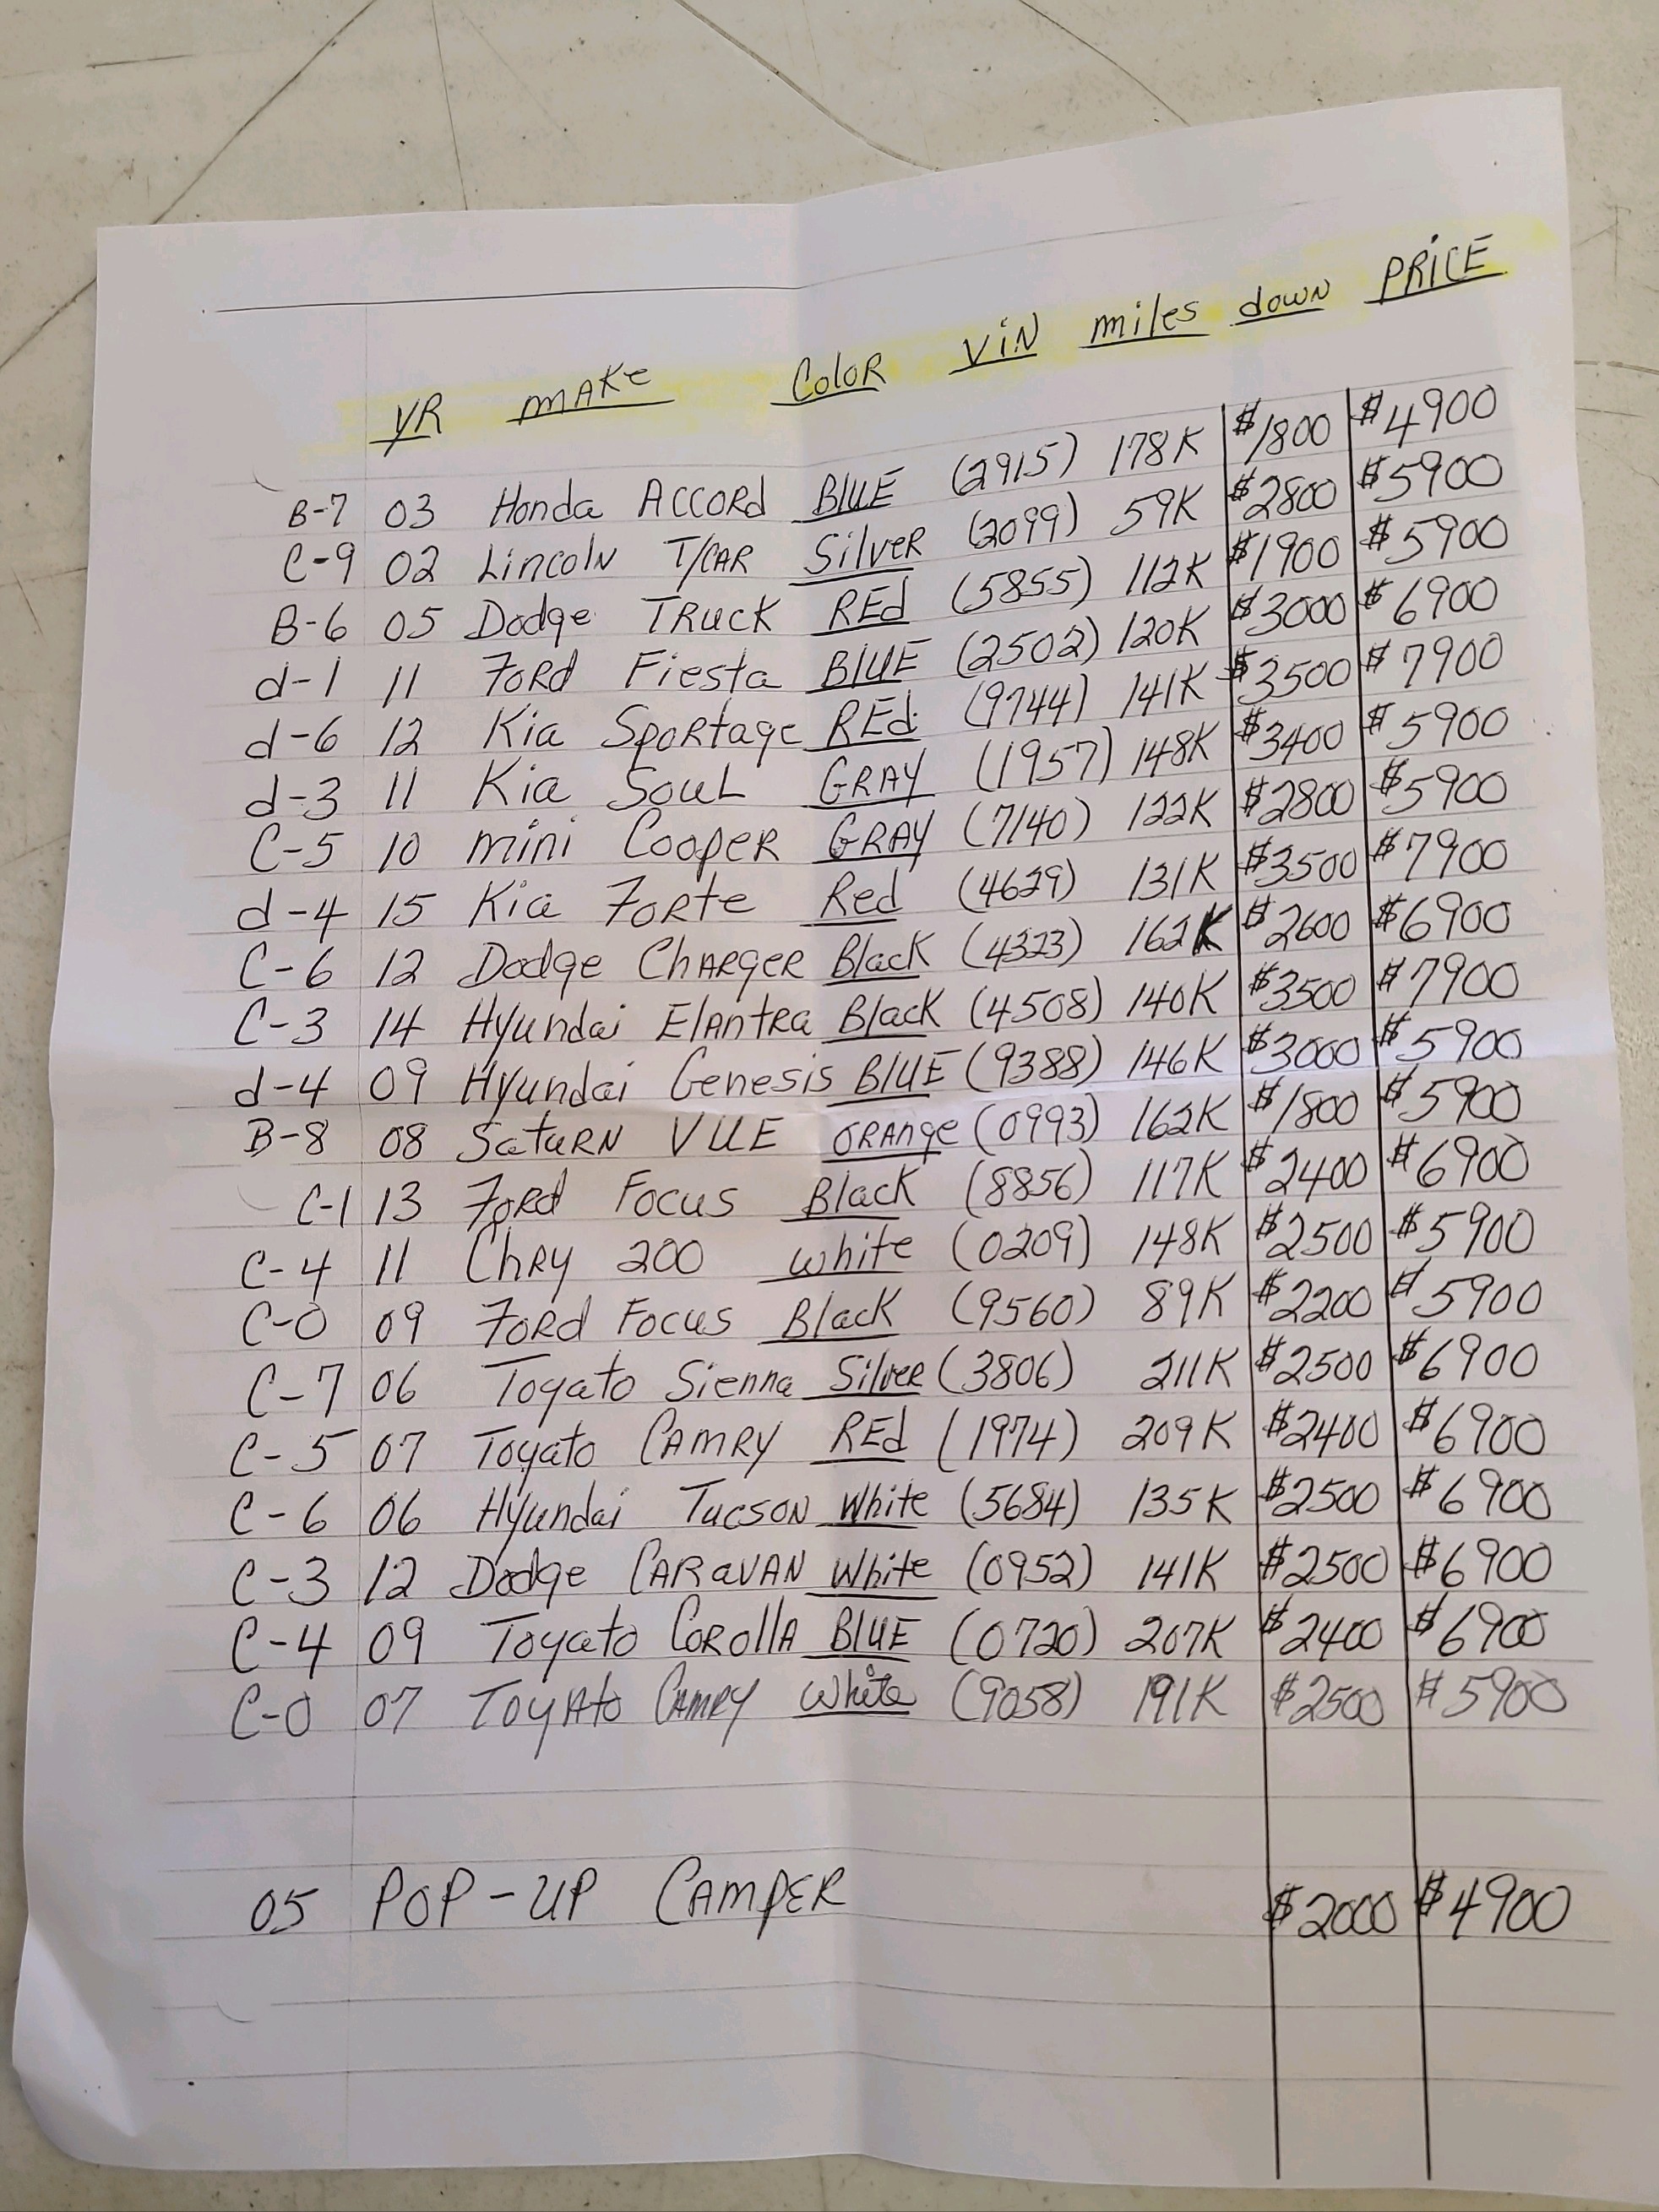 YR make Color ViN miles down PRiCE
B-7 03 Honda ACCORd BlUE (2915) 178K $1800 $4900
C-9 02 Lincoln T/CAR SilveR (2099) 59K $2800 $5900
B-6 05 Dodge TRuck REd (5855) 112K $1900 $5900
d-1 11 FoRd Fiesta BlUE (2502) 120K $3000 $6900
d-6 12 Kia SpoRtage REd (9744) 141K $3500 $7900
d-3 11 Kia SouL GRAY (1957) 148K $3400 $5900
C-5 10 mini CoopeR GRAY (7140) 122K $2800 $5900
d-4 15 Kia FoRte Red (4629) 131K $3500 $7900
C-6 12 Dodge ChARgeR Black (4323) 162K $2600 $6900
C-3 14 Hyundai ElAntRa Black (4508) 140K $3500 $7900
d-4 09 Hyundai Genesis BlUE (9388) 146K $3000 $5900
B-8 08 SatuRN VUE ORAnge (0993) 162K $1800 $5900
C-1 13 FoRd Focus Black (8856) 117K $2400 $6900
C-4 11 ChRy 200 white (0209) 148K $2500 $5900
C-0 09 FoRd Focus Black (9560) 89K $2200 $5900
C-7 06 Toyato Sienna Silver (3806) 211K $2500 $6900
C-5 07 Toyato CAMRY REd (1974) 209K $2400 $6900
C-6 06 Hyundai TucsoN White (5684) 135K $2500 $6900
C-3 12 Dodge CARaVAN White (0952) 141K $2500 $6900
C-4 09 Toyato CoRollA BlUE (0720) 207K $2400 $6900
C-0 07 ToyAto CAMRY White (9058) 191K $2500 $5900
05 POP-UP CAMPER $2000 $4900